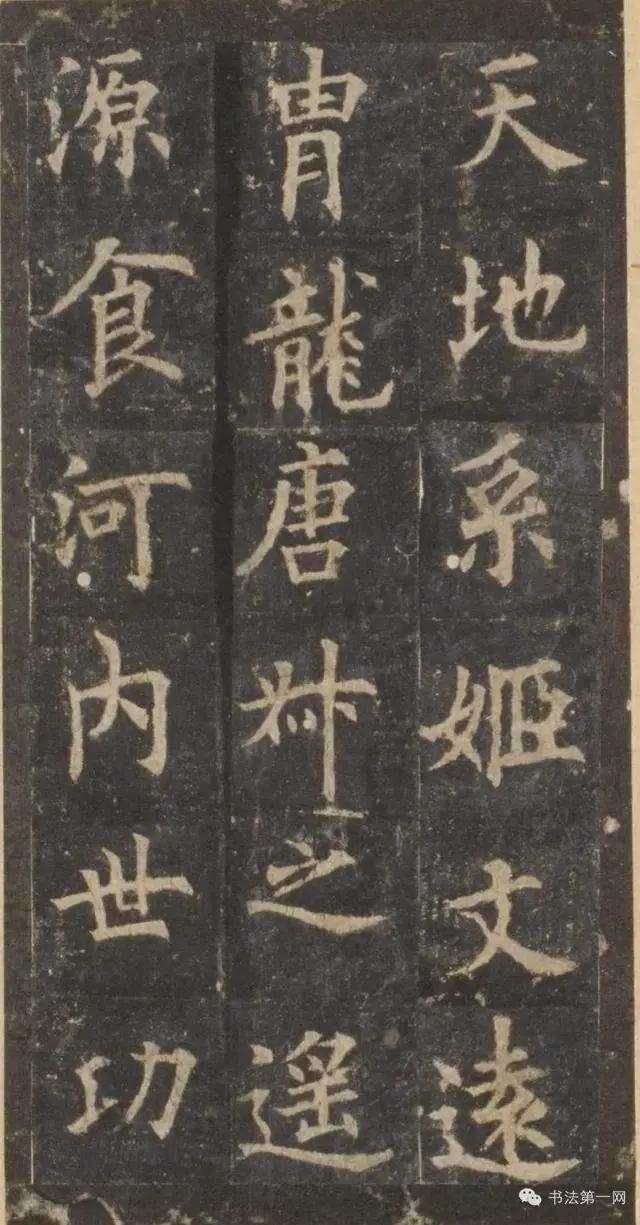 天地系姬文遠
胄龍唐叔之遙
源食河内世功
书法第一网